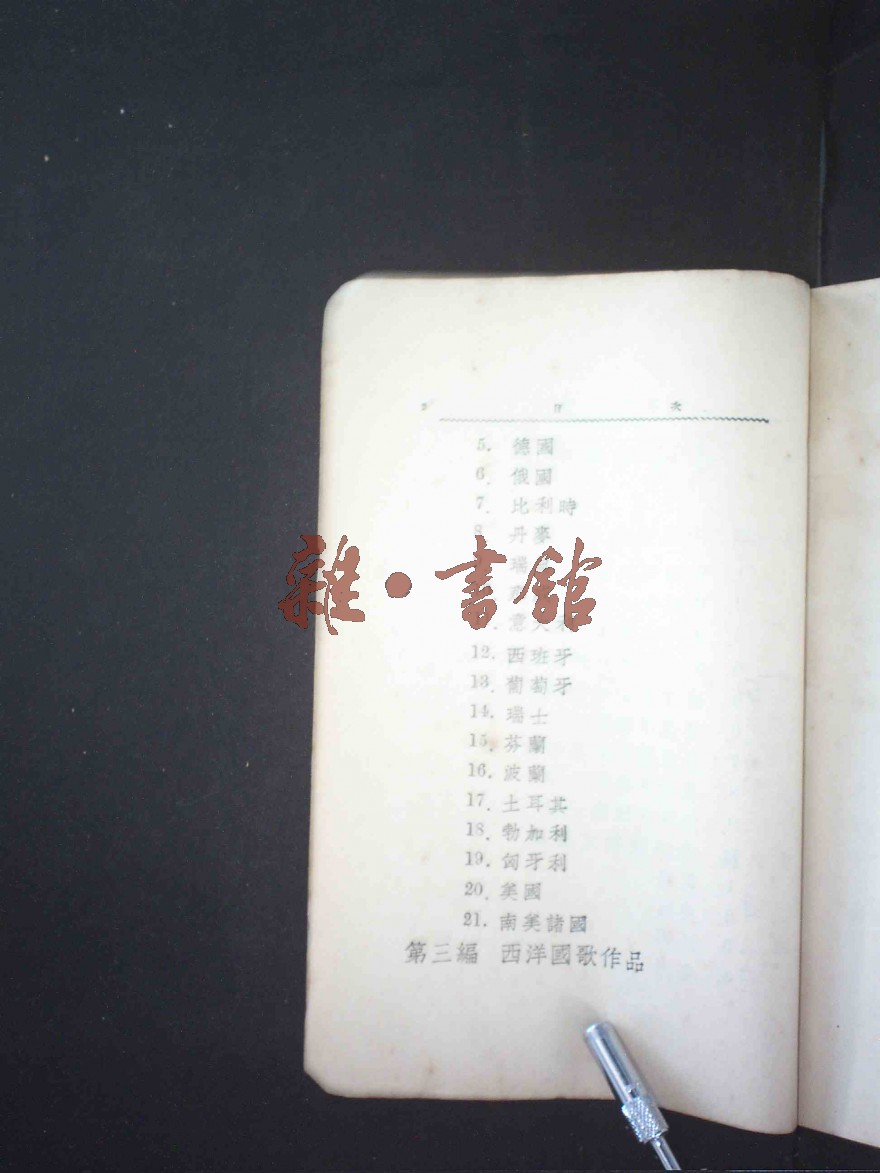 2 目 次
5. 德國
6. 俄國
7. 比利時
8. 丹麥
瑞
雜·書館
意大利
12. 西班牙
13. 葡萄牙
14. 瑞士
15. 芬蘭
16. 波蘭
17. 土耳其
18. 勃加利
19. 匈牙利
20. 美國
21. 南美諸國
第三編 西洋國歌作品